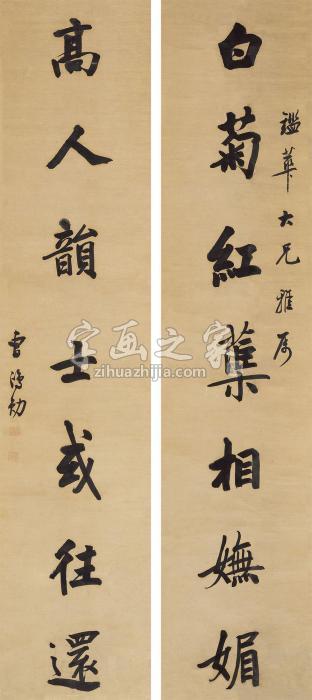 白菊紅葉相嫵媚
鑑華大兄雅属
高人韻士或往還
曹鴻勛
字画之家
zihuazhijia.com